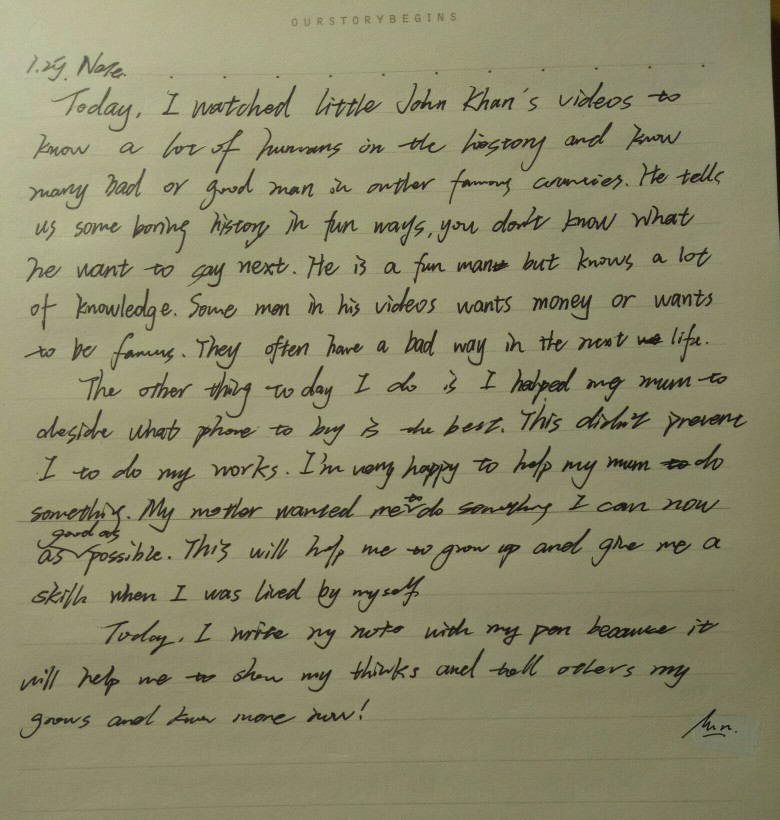 OURSTORYBEGINS
1.29. Note.
Today, I watched little John Khan's videos to
know a lot of humans in the history and know
many bad or good man in outher famous countries. He tells
us some boring history in fun ways, you don't know what
he want to say next. He is a fun man but knows a lot
of knowledge. Some men in his videos wants money or wants
to be famus. They often have a bad way in the next life.
The other thing today I do is I helped my mum to
deside what phone to buy is the best. This didn't prevent
I to do my works. I'm very happy to help my mum do
something. My mother wanted me to do something I can now
as good as possible. This will help me to grow up and give me a
skill when I was lived by myself
Today, I write my note with my pen because it
will help me to show my thinks and tell others my
grows and know more now!